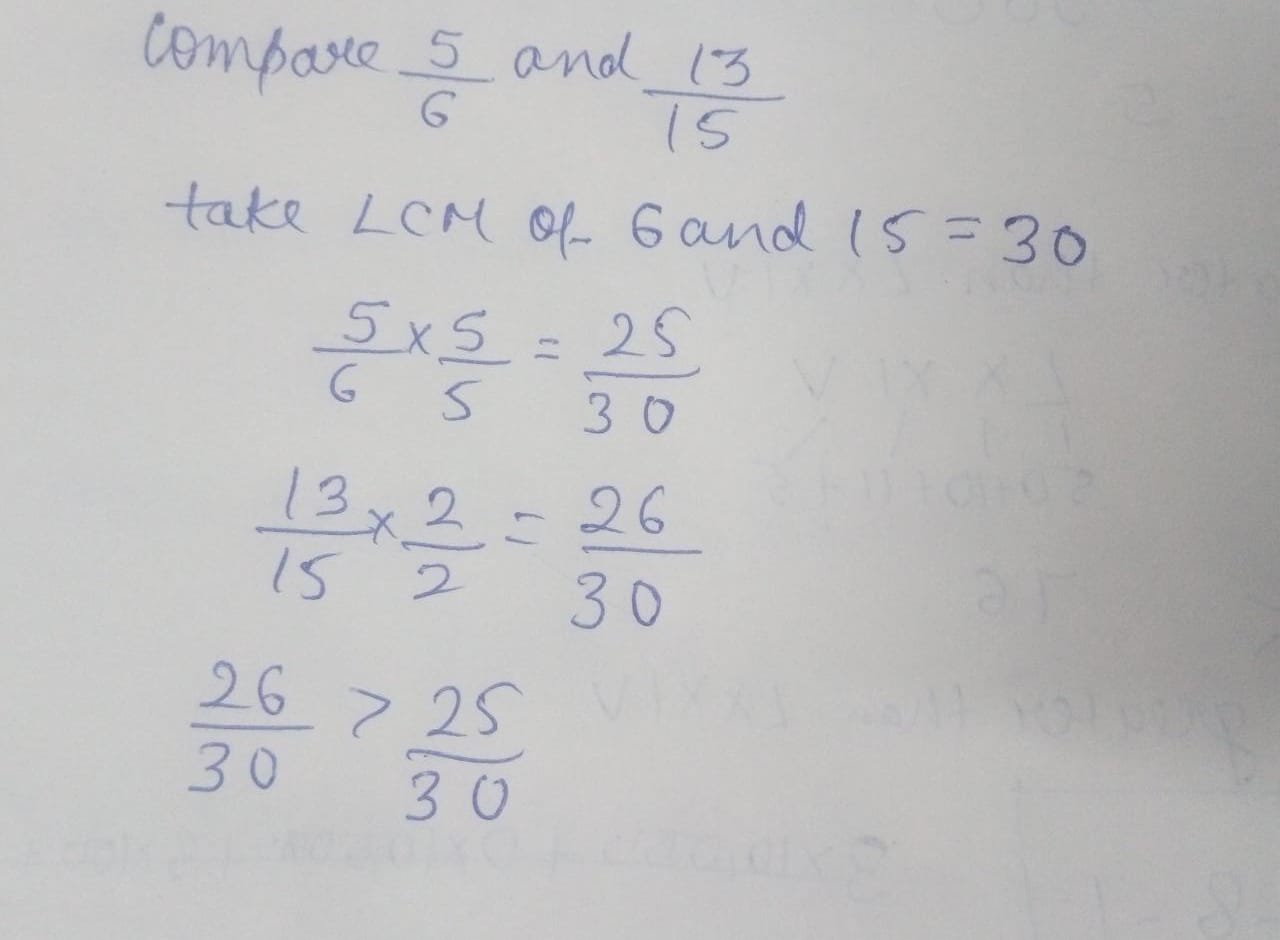 Compare 5/6 and 13/15
take LCM of 6 and 15 = 30
5/6 x 5/5 = 25/30
13/15 x 2/2 = 26/30
26/30 > 25/30